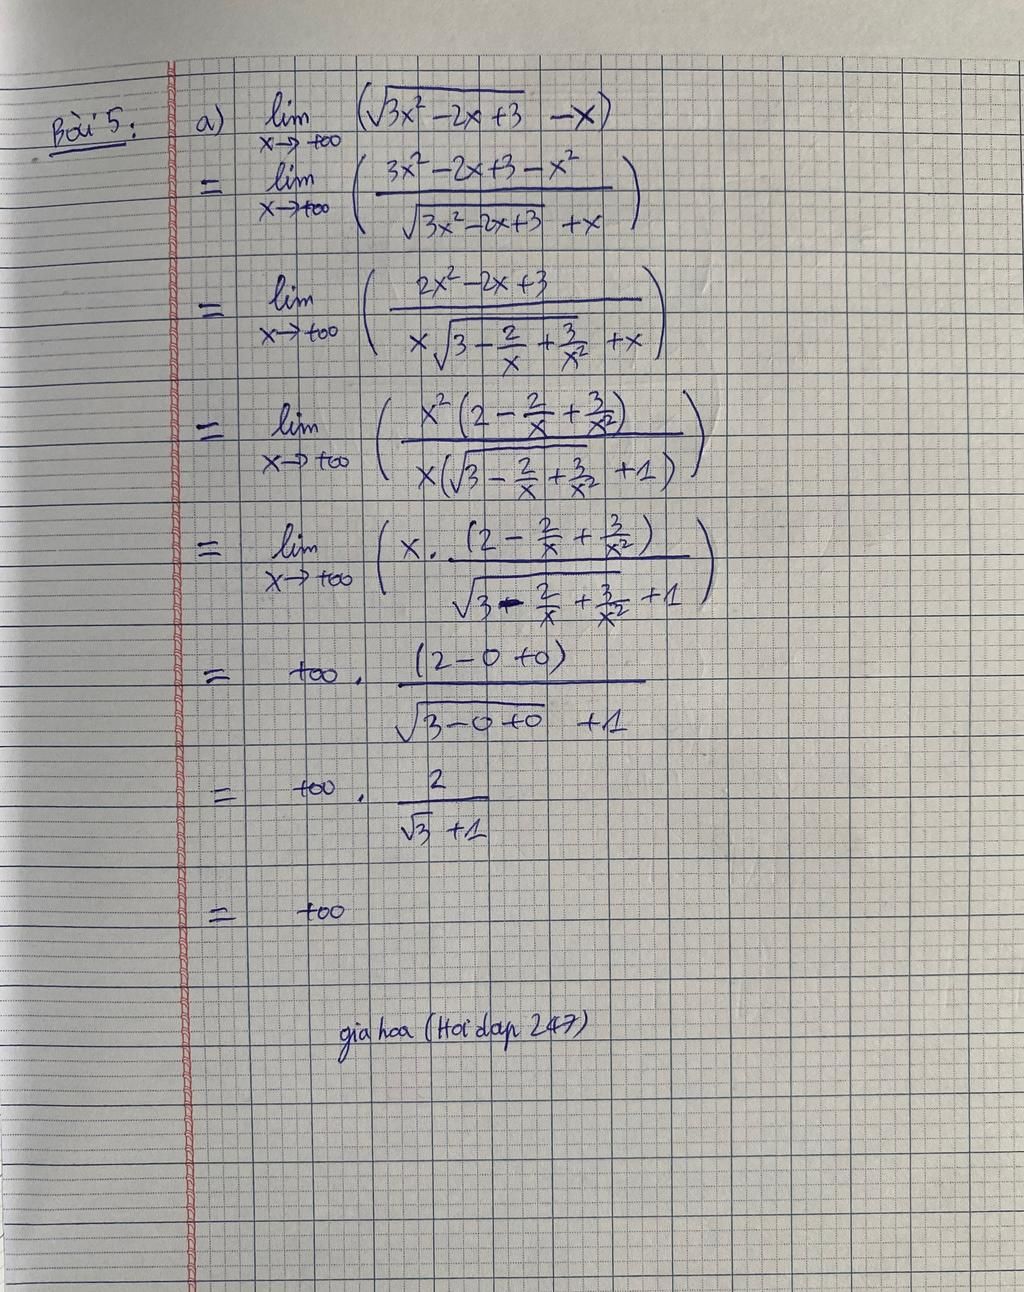 Bài 5: a) lim x→+∞ (√(3x² − 2x + 3) − x)
= lim x→+∞ ( (3x² − 2x + 3 − x²) / (√(3x² − 2x + 3) + x) )
= lim x→+∞ ( (2x² − 2x + 3) / (x√(3 − 2/x + 3/x²) + x) )
= lim x→+∞ ( x²(2 − 2/x + 3/x²) / (x(√(3 − 2/x + 3/x²) + 1)) )
= lim x→+∞ ( x . (2 − 2/x + 3/x²) / (√(3 − 2/x + 3/x²) + 1) )
= +∞ . (2 − 0 + 0) / (√(3 − 0 + 0) + 1)
= +∞ . 2 / (√3 + 1)
= +∞
gia hoa (Hoidap 247)